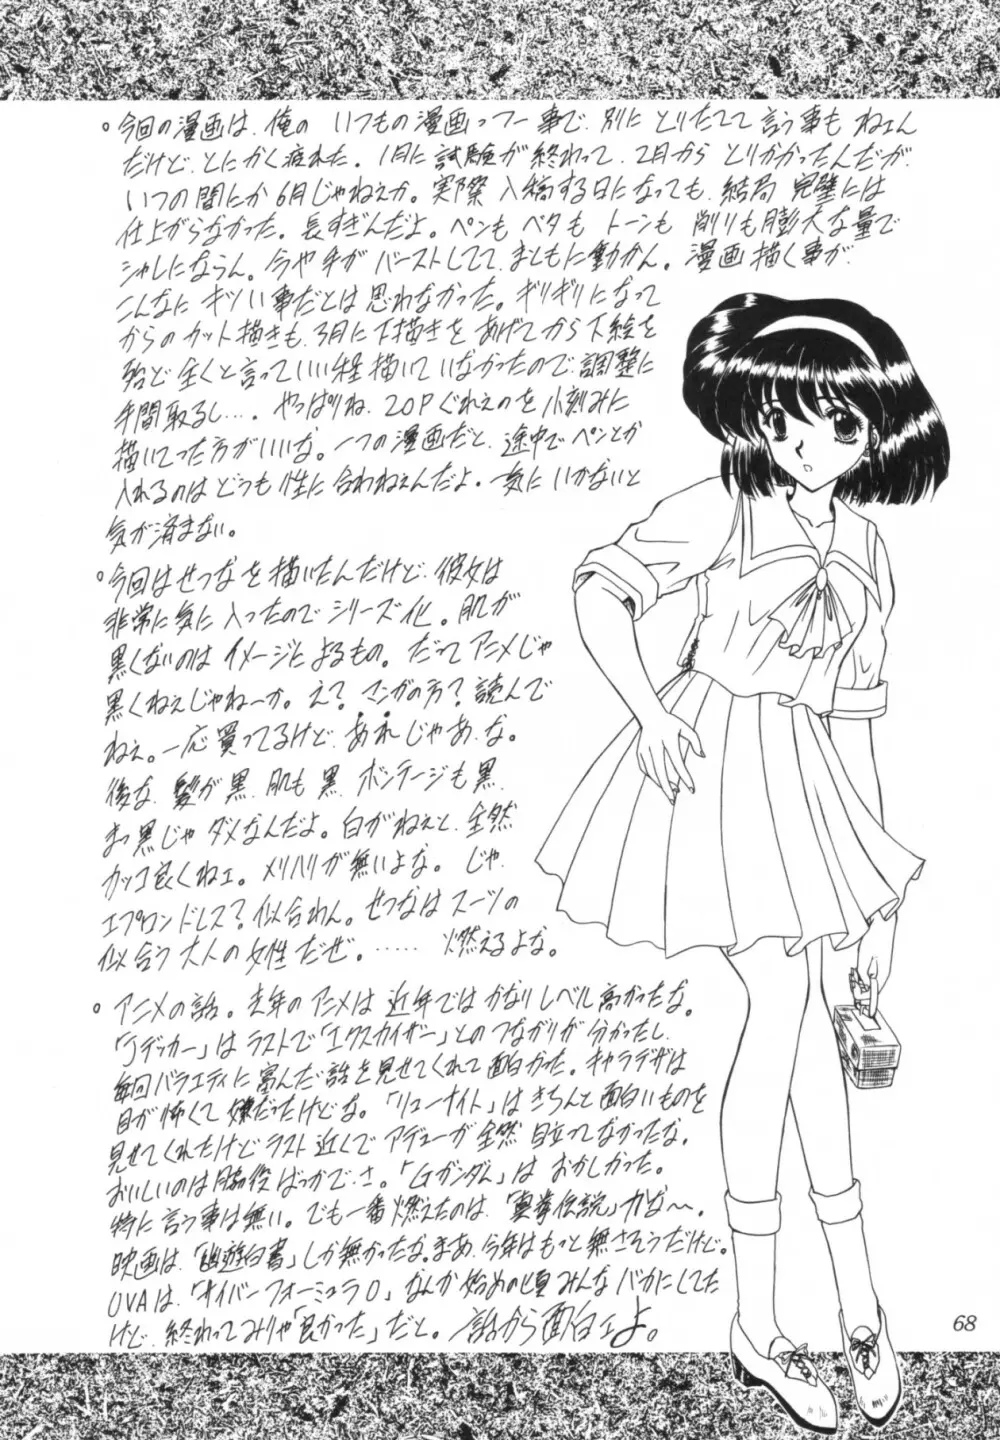 。今回の漫画は、俺の いつもの漫画って事で、別に とりたてて 言う事も ねェん
だけど、とにかく疲れた。1月に 試験が 終わって、2月から とりかかったんだが、
いつの間にか 6月じゃねえか。実際 入稿する日になっても、結局 完璧には
仕上がらなかった。長すぎんだよ。ペンも ベタも トーンも 削りも膨大な量で
シャレにならん。今や手が バーストしてて、まともに動かん。漫画描く事が、
こんなに キツい事だとは 思わなかった。ギリギリになって
からの カット描きも、3月に下描きを あげてから 下絵を
殆ど 全くと言っていい程 描いていなかったので、調整に
手間取るし…。やっぱりね、20Pぐれえのを 小刻みに
描いてった方がいいな。一つの漫画だと、途中で ペンとか
入れるのは どうも 性に合わねえんだよ。一気に いかないと
気が済まない。
。今回は せつな を描いたんだけど、彼女は
非常に気に入ったので シリーズ化。肌が
黒くないのは イメージによるもの。だって アニメじゃ
黒くねぇじゃねーか。え？マンガの方？読んで
ねぇ。一応買ってるけど、あれじゃあ、な。
後な、髪が黒、肌も黒、ボンテージも黒、
まっ黒じゃ ダメなんだよ。白がねぇと、全然
カッコ良くねェ。メリハリが無いよな。じゃ、
エプロンドレス？似合わん。せつなは スーツの
似合う 大人の女性だぜ。…… 燃えるよな。
。アニメの話。去年の アニメは 近年では かなりレベル高かったな。
「Jデッカー」は ラストで「エクスカイザー」との つながりが 分かったし、
毎回バラエティに富んだ話を見せてくれて面白かった。キャラデザは
目が怖くて 嫌だったけどな。「リューナイト」は きちんと面白いものを
見せてくれたけど ラスト 近くで アデューが 全然 目立ってなかったな。
おいしいのは 脇役 ばっかでさ。「Gガンダム」は おかしかった。
特に言う事は無い。でも一番燃えたのは、「真拳伝説」かな〜。
映画は、「幽遊白書」しか無かったな。まあ、今年はもっと無さそうだけど。
OVAは、「サイバーフォーミュラ0」、なんか 始めの頃 みんな バカにしてた
けど、終わってみりゃ「良かった」だと。話から面白ェよ。
68